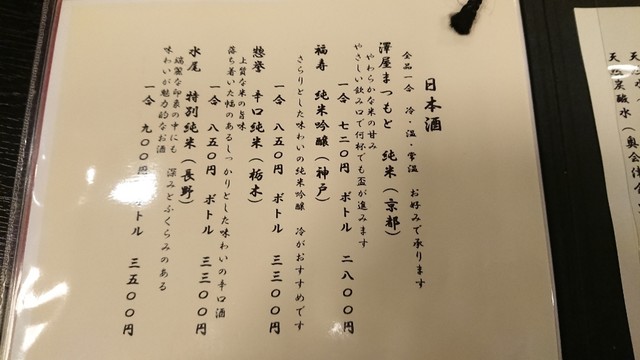 日本酒
全品一合 冷・温・常温 お好みで承ります
澤屋まつもと 純米(京都)
やわらかな米の甘み
やさしい飲み口で何杯でも盃が進みます
一合 七二〇円 ボトル 二八〇〇円
福寿 純米吟醸(神戸)
さらりとした味わいの純米吟醸 冷がおすすめです
一合 八五〇円 ボトル 三三〇〇円
惣誉 辛口純米(栃木)
上質な米の旨味
落ち着いた幅のあるしっかりとした味わいの辛口酒
一合 八五〇円 ボトル 三三〇〇円
水尾 特別純米(長野)
端麗な印象の中にも 深みとふくらみのある
味わいが魅力的なお酒
一合 九〇〇円 ボトル 三五〇〇円
天然炭酸水(奥会津